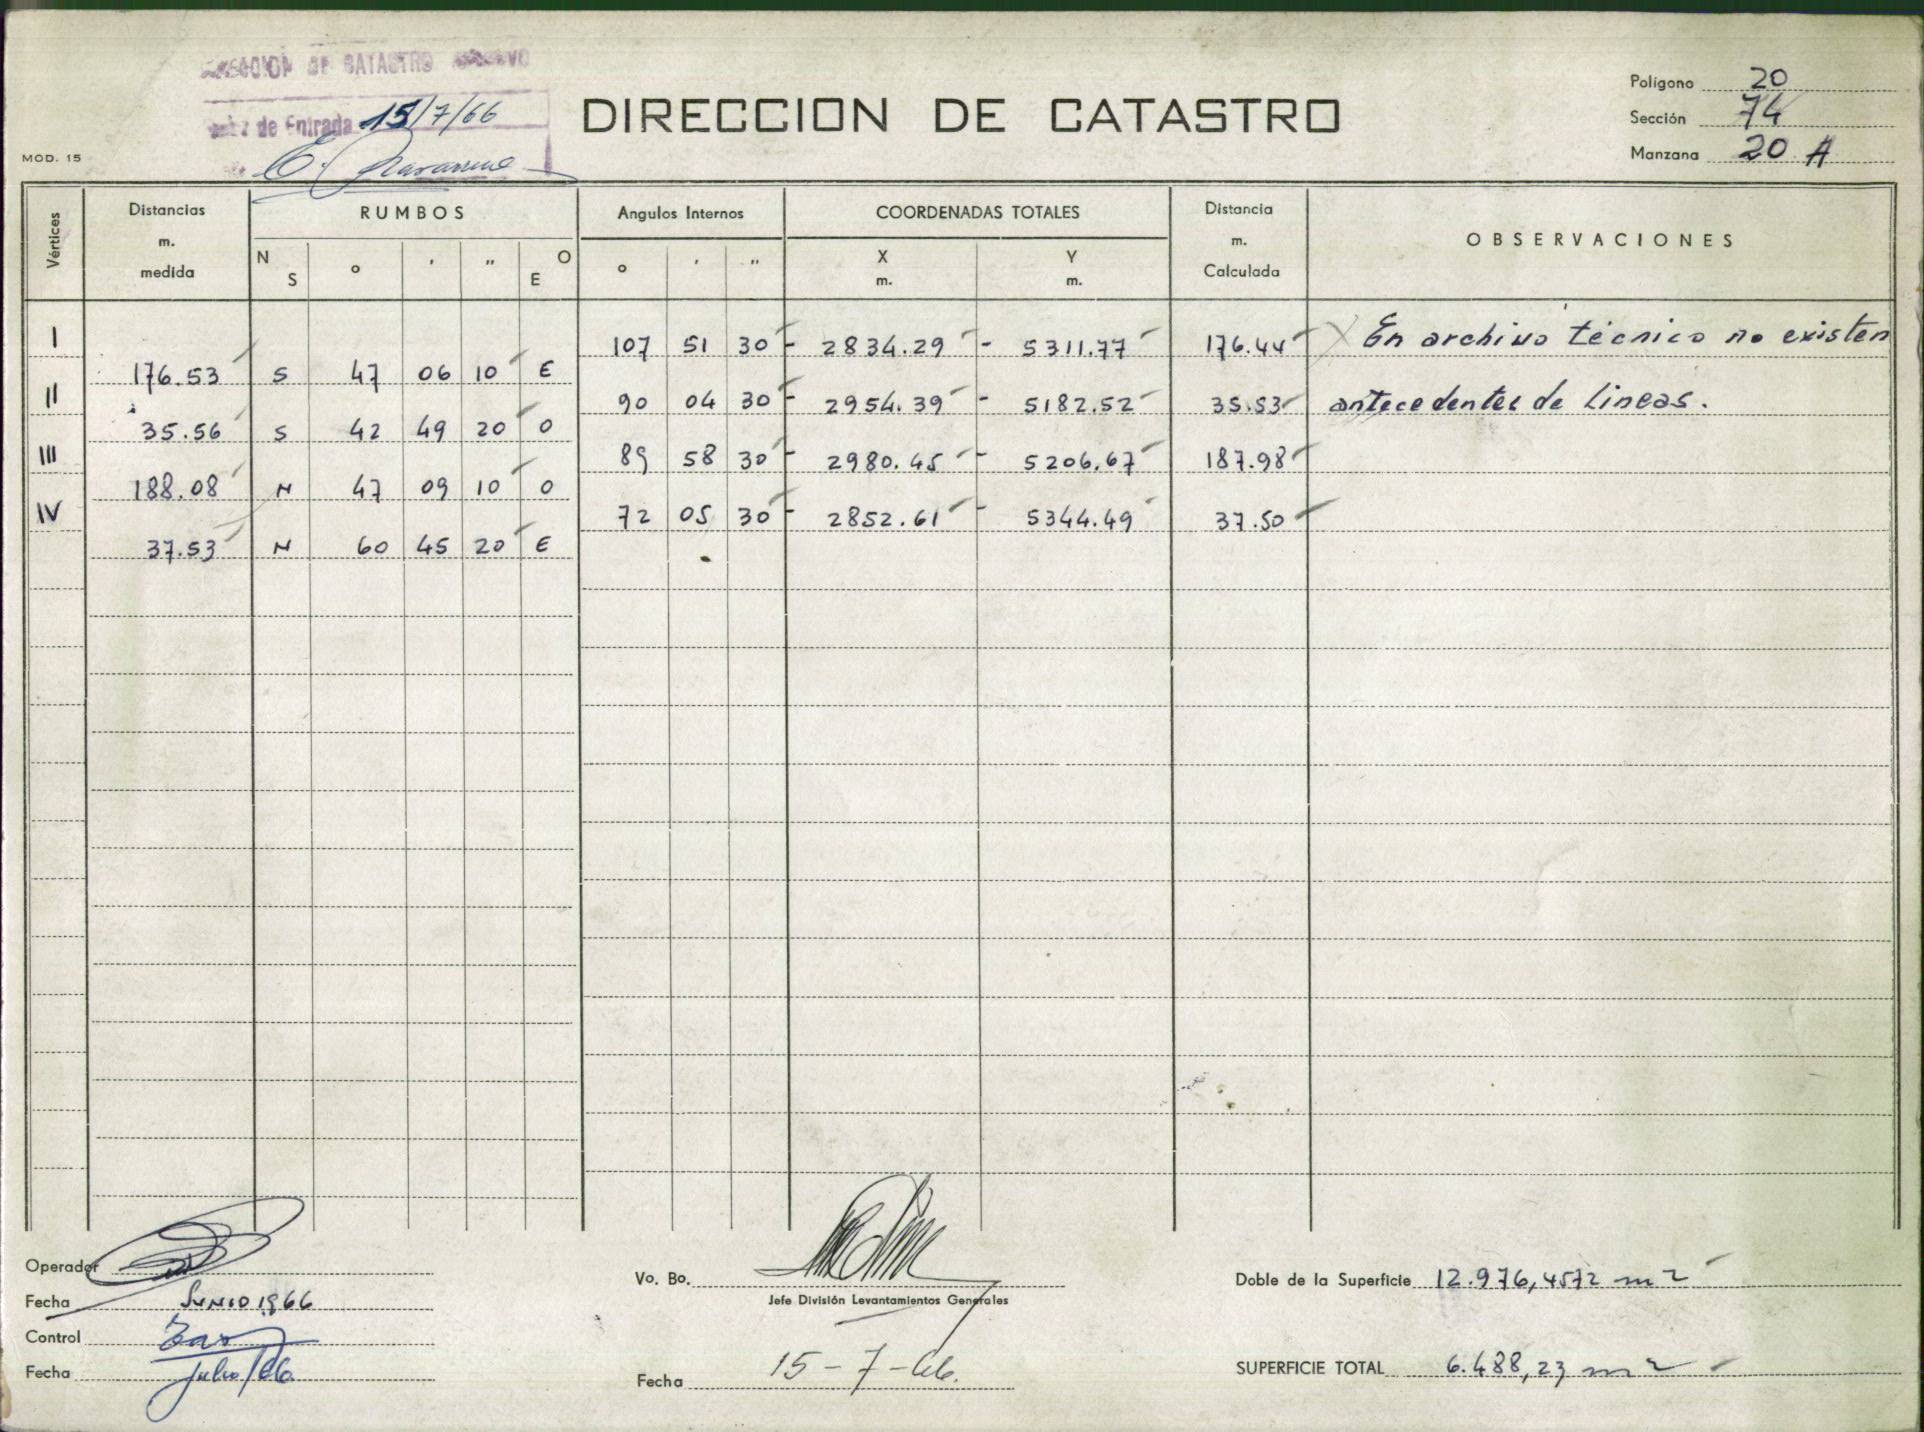 DIRECCION DE CATASTRO
de Entrada 15/7/66
MOD. 15
Polígono 20
Sección 74
Manzana 20 A
Vértices
Distancias m. medida
RUMBOS
N S ° ' " O E
Angulos Internos
° ' "
COORDENADAS TOTALES
X m. Y m.
Distancia m. Calculada
OBSERVACIONES
I 107 51 30 - 2834.29 - 5311.77 176.44 En archivo técnico no existen
176.53 S 47 06 10 E
II 90 04 30 - 2954.39 - 5182.52 35.53 antecedentes de Lineas.
35.56 S 42 49 20 O
III 89 58 30 - 2980.45 - 5206.67 187.98
188.08 N 47 09 10 O
IV 72 05 30 - 2852.61 - 5344.49 37.50
37.53 N 60 45 20 E
Operador
Fecha Junio 1966
Control
Fecha Julio/66
Vo. Bo.
Jefe División Levantamientos Generales
Fecha 15-7-66.
Doble de la Superficie 12.976,4572 m2
SUPERFICIE TOTAL 6.488,23 m2